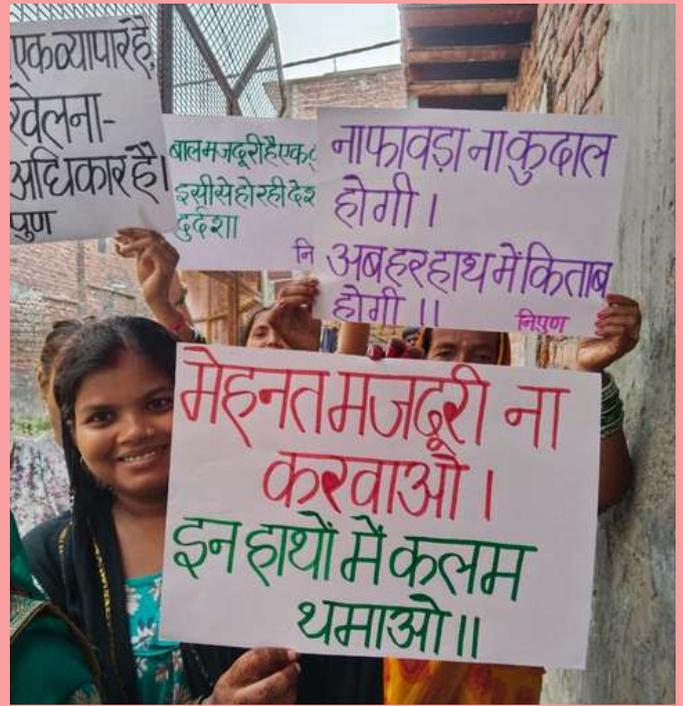 एक व्यापार है,
खेलना-
अधिकार है।
पुण
बाल मजदूरी है एक
इसी से हो रही देश
दुर्दशा
नि
ना फावड़ा ना कुदाल
होगी।
अब हर हाथ में किताब
होगी ।।
निपुण
मेहनत मजदूरी ना
करवाओ।
इन हाथों में कलम
थमाओ॥